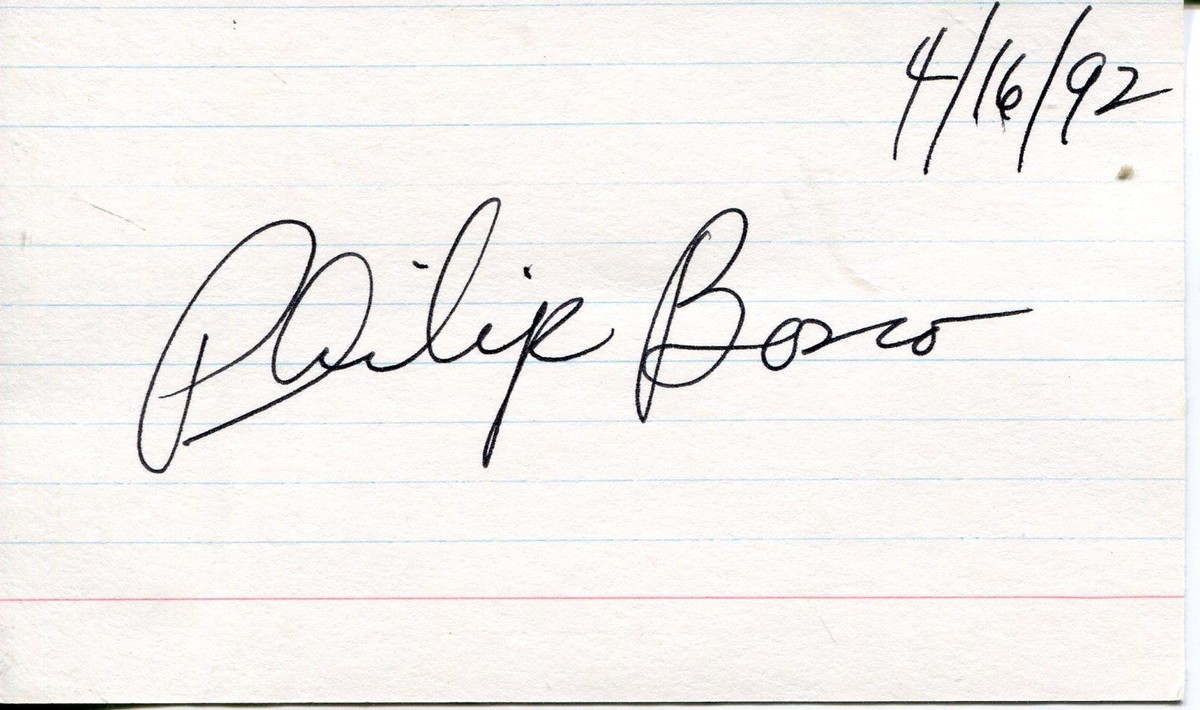 4/16/92
Philip Bosco